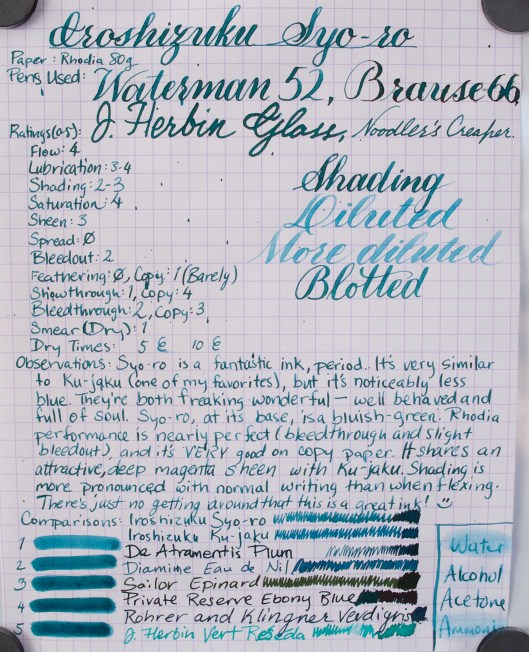 Iroshizuku Syo-ro
Paper: Rhodia 80g
Pens Used: Waterman 52, Brause 66,
J. Herbin Glass, Noodler's Creaper
Ratings (0-5):
Flow: 4
Lubrication: 3-4
Shading: 2-3
Saturation: 4
Sheen: 3
Spread: Ø
Bleedout: 2
Feathering: Ø, Copy: 1 (Barely)
Showthrough: 1, Copy: 4
Bleedthrough: 2, Copy: 3
Smear (Dry): 1
Dry Times: 5 € 10 €
Shading
Diluted
More diluted
Blotted
Observations: Syo-ro is a fantastic ink, period. It's very similar
to Ku-jaku (one of my favorites), but it's noticeably less
blue. They're both freaking wonderful — well behaved and
full of soul. Syo-ro, at its base, is a bluish-green. Rhodia
performance is nearly perfect (bleedthrough and slight
bleedout), and it's VERY good on copy paper. It shares an
attractive, deep magenta sheen with Ku-jaku. Shading is
more pronounced with normal writing than when flexing.
There's just no getting around that this is a great ink! :)
Comparisons: Iroshizuku Syo-ro
Iroshizuku Ku-jaku
De Atramentis Plum
Diamine Eau de Nil
Sailor Epinard
Private Reserve Ebony Blue
Rohrer and Klingner Verdigris
J. Herbin Vert Réséda
1
2
3
4
5
Water
Alcohol
Acetone
Ammonia